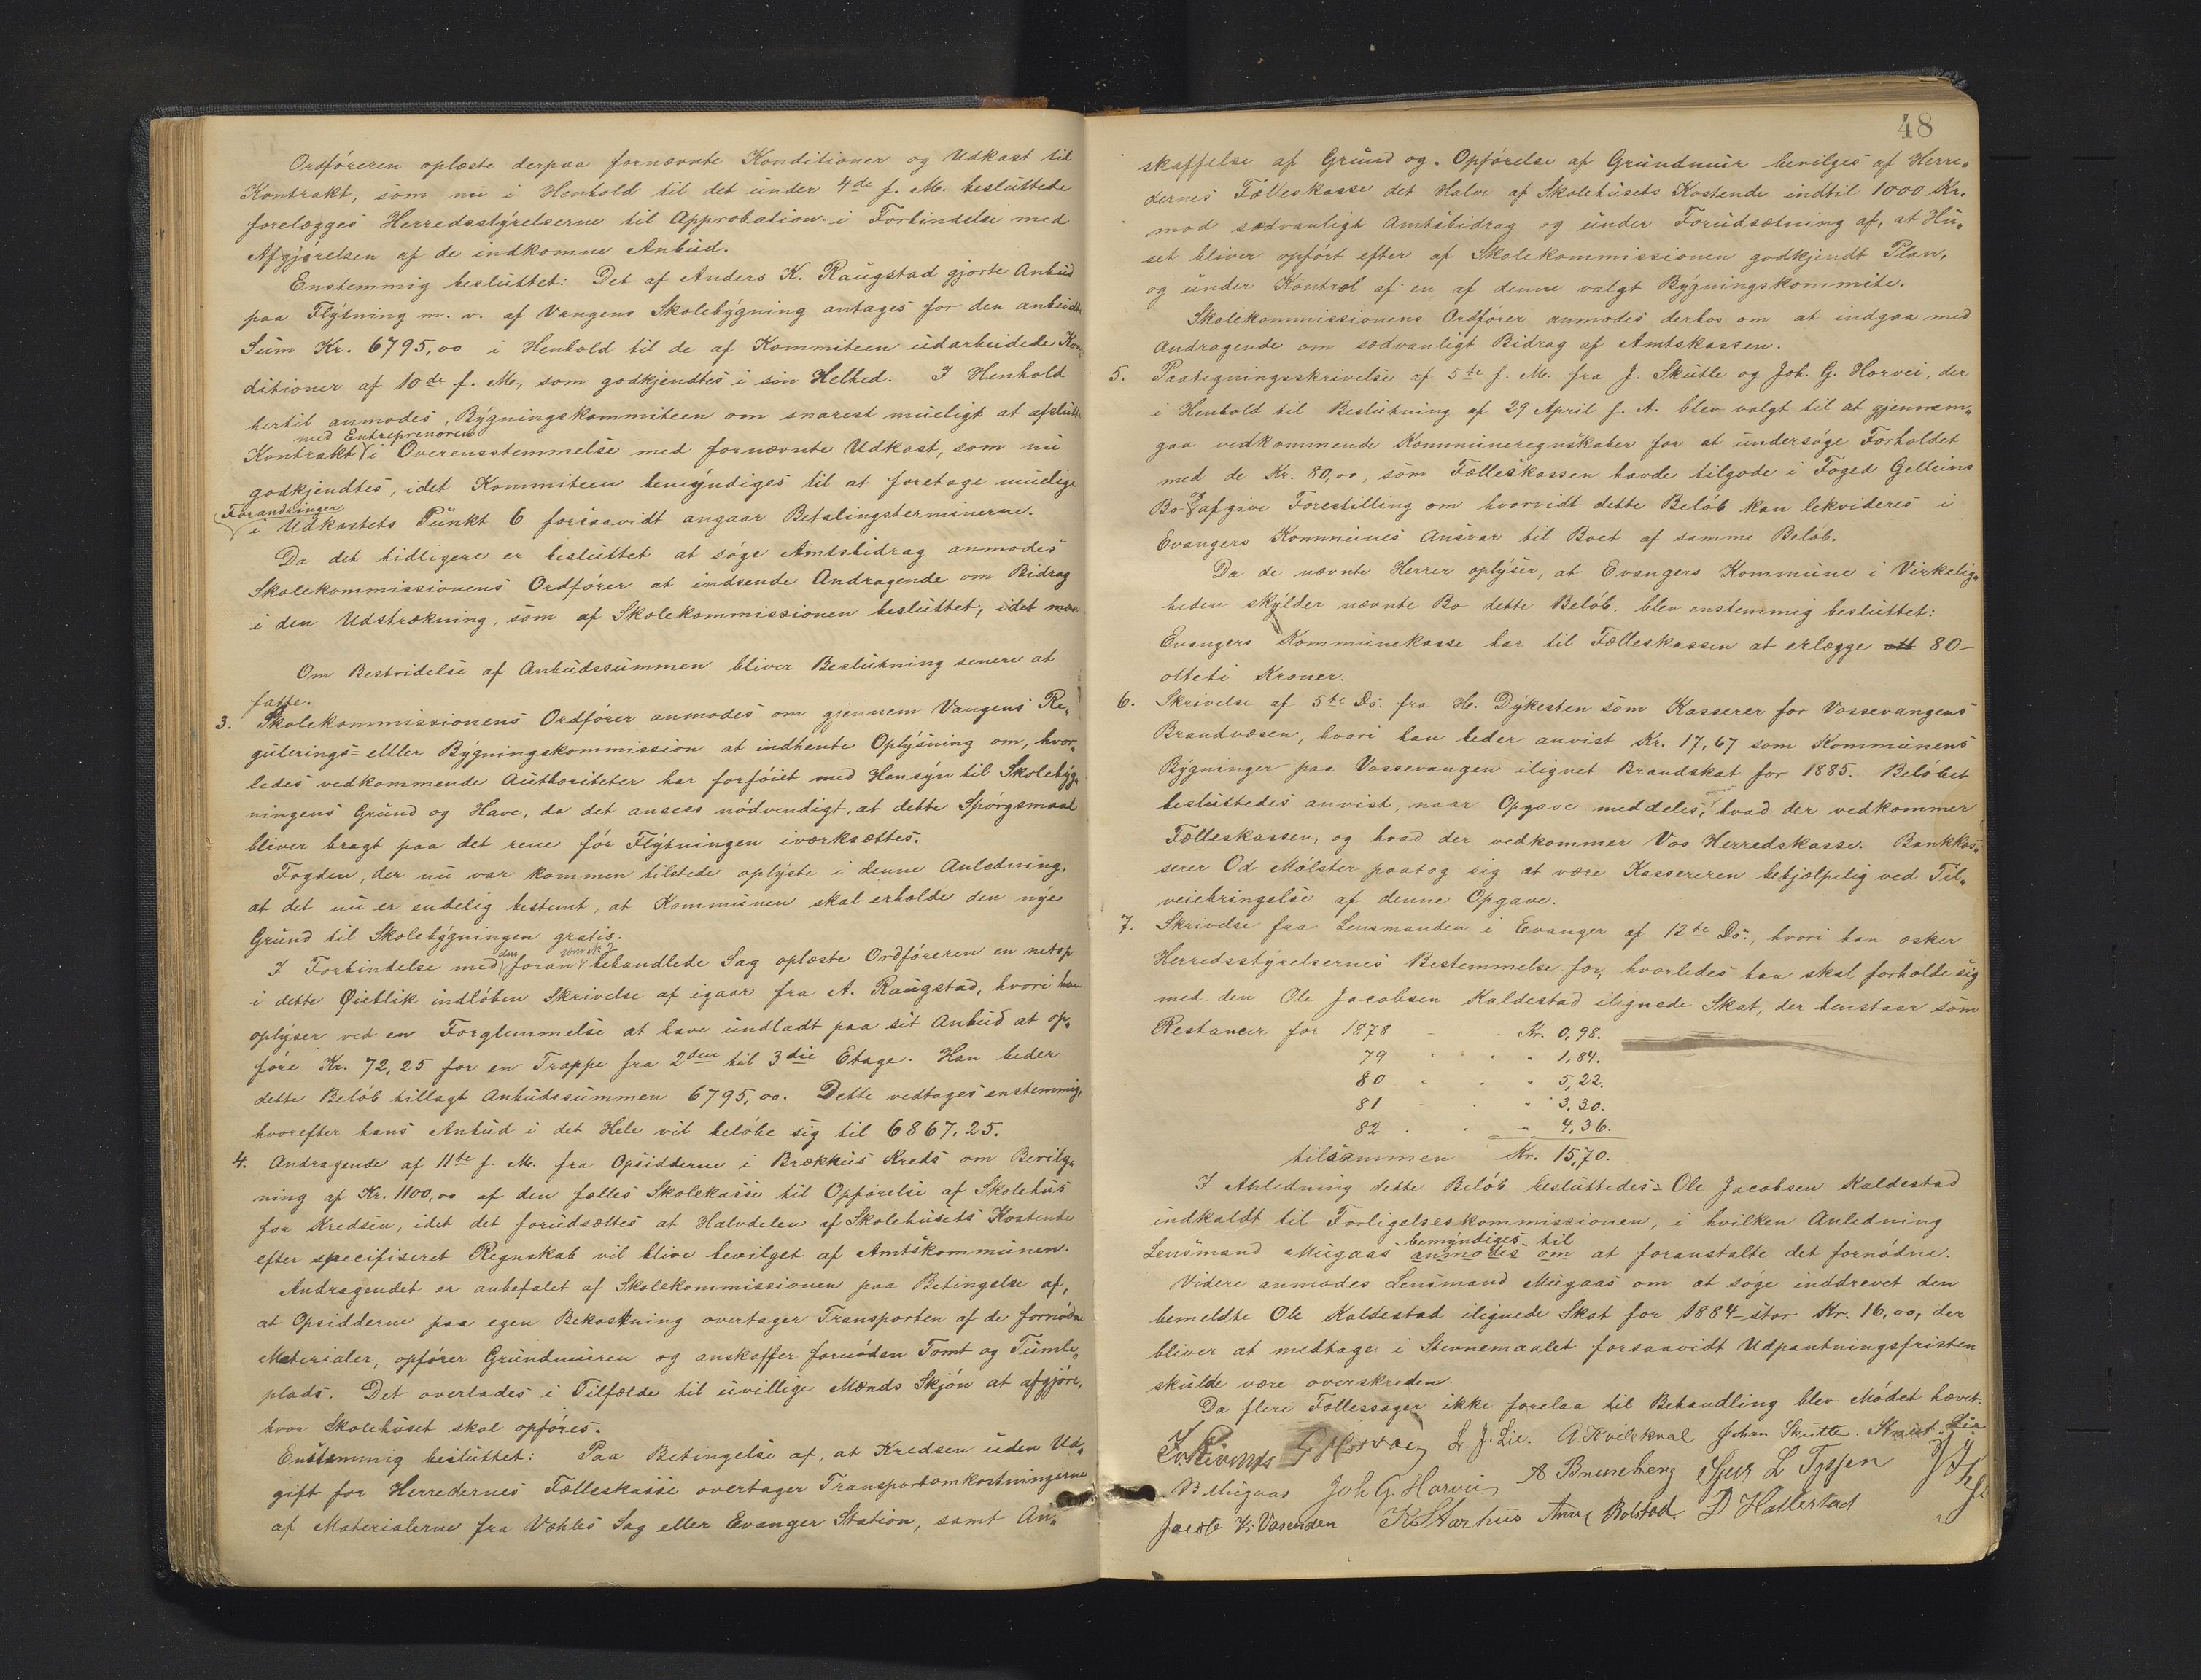 Ordføreren oplæste derpaa fornævnte Konditioner og Udkast til
Kontrakt, som nu i Henhold til det under 4de f. M. besluttede
forelægges Herredsstyrelserne til Approbation i Forbindelse med
Afgjørelsen af de indkomne Anbud.
Enstemmig besluttet: Det af Anders K. Raugstad gjorte Anbud
paa Flytning m. v. af Vangens Skolebygning antages for den anbudte
Sum Kr. 6795,00 i Henhold til de af Kommiteen udarbeidede Kon„
ditioner af 10de f. M., som godkjendtes i sin Helhed. I Henhold
hertil anmodes Bygningskommiteen om snarest mueligt at afslutte
med Entreprenøren
Kontrakt i Overensstemmelse med fornævnte Udkast, som nu
godkjendtes, idet Kommiteen bemyndiges til at foretage muelige
Forandringer
i Udkastets Punkt 6 forsaavidt angaar Betalingsterminerne.
Da det tidligere er besluttet at søge Amtsbidrag anmodes
Skolekommissionens Ordfører at indsende Andragende om Bidrag
i den Udstrækning, som af Skolekommissionen besluttet, idet man
Om Bestridelse af Anbudssummen bliver Beslutning senere at
fatte.
3. Skolekommissionens Ordfører anmodes om gjennem Vangens Re„
gulerings= elller Bygningskommission at indhente Oplysning om, hvor„
ledes vedkommende Authoriteter har forføiet med Hensyn til Skolebyg„
ningens Grund og Have, da det ansees nødvendigt, at dette Spørgsmaal
bliver bragt paa det rene før Flytningen iværksættes.
Fogden, der nu var kommen tilstede oplyste i denne Anledning,
at det nu er endelig bestemt, at Kommunen skal erholde den nye
Grund til Skolebygningen gratis.
den som No 2
I Forbindelse med foran behandlede Sag oplæste Ordføreren en netop
i dette Øieblik indløben Skrivelse af igaar fra A. Raugstad, hvori han
oplyser ved en Forglemmelse at have undladt paa sit Anbud at op„
føre Kr. 72,25 for en Trappe fra 2den til 3die Etage. Han beder
dette Beløb tillagt Anbudssummen 6795,00. Dette vedtages enstemmig,
hvorefter hans Anbud i det Hele vil beløbe sig til 6867.25.
4. Andragende af 11te f. M. fra Opsidderne i Brækhus Kreds om Bevilg„
ning af Kr. 1100,00 af den fælles Skolekasse til Opførelse af Skolehus
for Kredsen, idet det forudsættes at Halvdelen af Skolehusets Kostende
efter specifiseret Regnskab vil blive bevilget af Amtskommunen.
Andragendet er anbefalet af Skolekommissionen paa Betingelse af,
at Opsidderne paa egen Bekostning overtager Transporten af de fornødne
Materialer, opfører Grundmuren og anskaffer fornøden Tomt og Tumle„
plads. Det overlades i Tilfælde til uvillige Mænds Skjøn at afgjøre,
hvor Skolehuset skal opføres.
Enstemmig besluttet: Paa Betingelse af, at Kredsen uden Ud„
gift for Herredernes Fælleskasse overtager Transportomkostningerne
af Materialerne fra Væhles Sag eller Evanger Station, samt An„
48
skaffelse af Grund og Opførelse af Grundmur bevilges af Herre„
dernes Fælleskasse det Halve af Skolehusets Kostende indtil 1000 Kr.
mod sædvanligt Amtsbidrag og under Forudsætning af, at Hu„
set bliver opført efter af Skolekommissionen godkjendt Plan,
og under Kontrol af en af denne valgt Bygningskommite.
Skolekommissionens Ordfører anmodes derhos om at indgaa med
Andragende om sædvanligt Bidrag af Amtskassen.
5. Paategningsskrivelse af 5te f. M. fra J. Skutle og Joh. G. Horvei, der
i Henhold til Beslutning af 29 April f. A. blev valgt til at gjennem„
gaa vedkommende Kommuneregnskaber for at undersøge Forholdet
med de Kr. 80,00, som Fælleskassen havde tilgode i Foged Gelleins
Bo afgive Forestilling om hvorvidt dette Beløb kan lekvideres i
Evangers Kommunes Ansvar til Boet af samme Beløb.
Da de nævnte Herrer oplyser, at Evangers Kommune i Virkelig„
heden skylder nævnte Bo dette Beløb, blev enstemmig besluttet:
Evangers Kommunekasse har til Fælleskassen at erlægge ott 80-
otteti Kroner.
6. Skrivelse af 5te Ds. fra H. Dykesten som Kasserer for Vossevangens
Brandvæsen, hvori han beder anvist Kr. 17,67 som Kommunens
Bygninger paa Vossevangen ilignet Brandskat for 1885. Beløbet
besluttedes anvist, naar Opgave meddeles, hvad der vedkommer
Fælleskassen, og hvad der vedkommer Vos Herredskasse. Bankkas„
serer Od Mølster paatog sig at være Kassereren behjælpelig ved Til„
veiebringelse af denne Opgave.
7. Skrivelse fra Lensmanden i Evanger af 12te Ds., hvori han æsker
Herredsstyrelsernes Bestemmelse for, hvorledes han skal forholde sig
med den Ole Jacobsen Kaldestad ilignede Skat, der henstaar som
Restancer for 1878 Kr. 0,98.
79 " 1,84.
80 " 5,22.
81 " 3,30.
82 " 4,36.
tilsammen Kr. 15,70.
I Anledning dette Beløb besluttedes: Ole Jacobsen Kaldestad
indkaldt til Forligelseskommissionen, i hvilken Anledning
bemyndiges til
Lensmand Mugaas anmodes om at foranstalte det fornødne.
Videre anmodes Lensmand Mugaas om at søge inddrevet den
bemeldte Ole Kaldestad ilignede Skat for 1884 stor Kr. 16,00, der
bliver at medtage i Stevnemaalet forsaavidt Udpantningsfristen
skulde være overskreden.
Da flere Fællessager ikke forelaa til Behandling blev Mødet hævet.
L. J. Lie. A. Kvilekval Johan Skutle. Knut Lie
B Mugaas Joh G. Horvei A Bruneberg Sjur L Tyssen
Jacob K. Væsenden K Starhus Anve Bolstad. D Hallestad